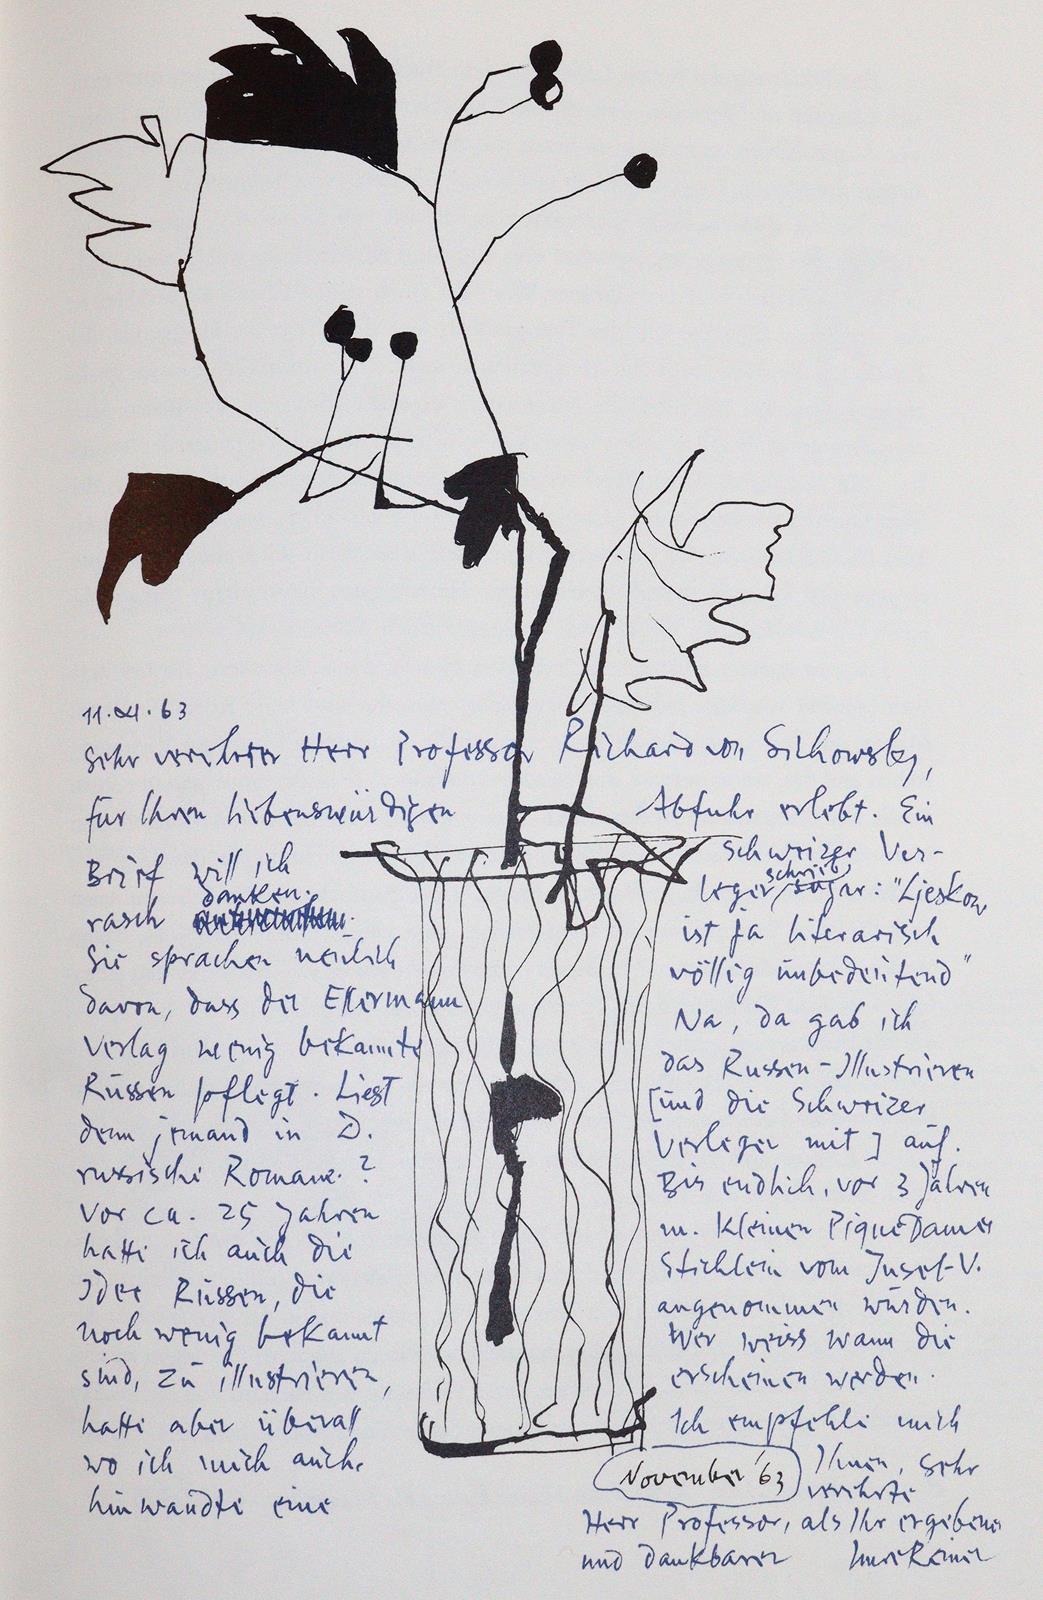 11. XI. 63
Sehr verehrter Herr Professor Richard von Sichowsky,
für Ihren liebenswürdigen
Brief will ich
danken.
rasch
Sie sprachen neulich
davon, dass der Ellermann
Verlag wenig bekannte
Russen pflegt. Liest
denn jemand in D.
russische Romane.?
Vor ca. 25 Jahren
hatte ich auch die
Idee Russen, die
noch wenig bekannt
sind, zu illustrieren,
hatte aber überall
wo ich mich auch
hinwandte eine
Abfuhr erlebt. Ein
Schweizer Ver-
schrieb
leger sogar: "Ljeskow
ist ja literarisch
völlig unbedeutend"
Na, da gab ich
das Russen-Illustrieren
[und die Schweizer
Verleger mit] auf.
Bis endlich, vor 3 Jahren
m. kleinen Pique Dame
Stichlein vom Insel-V.
angenommen wurden.
Wer weiss wann die
erscheinen werden.
Ich empfehle mich
November '63
Ihnen, sehr
verehrte
Herr Professor, als Ihr ergebener
und dankbarer Imre Reiner